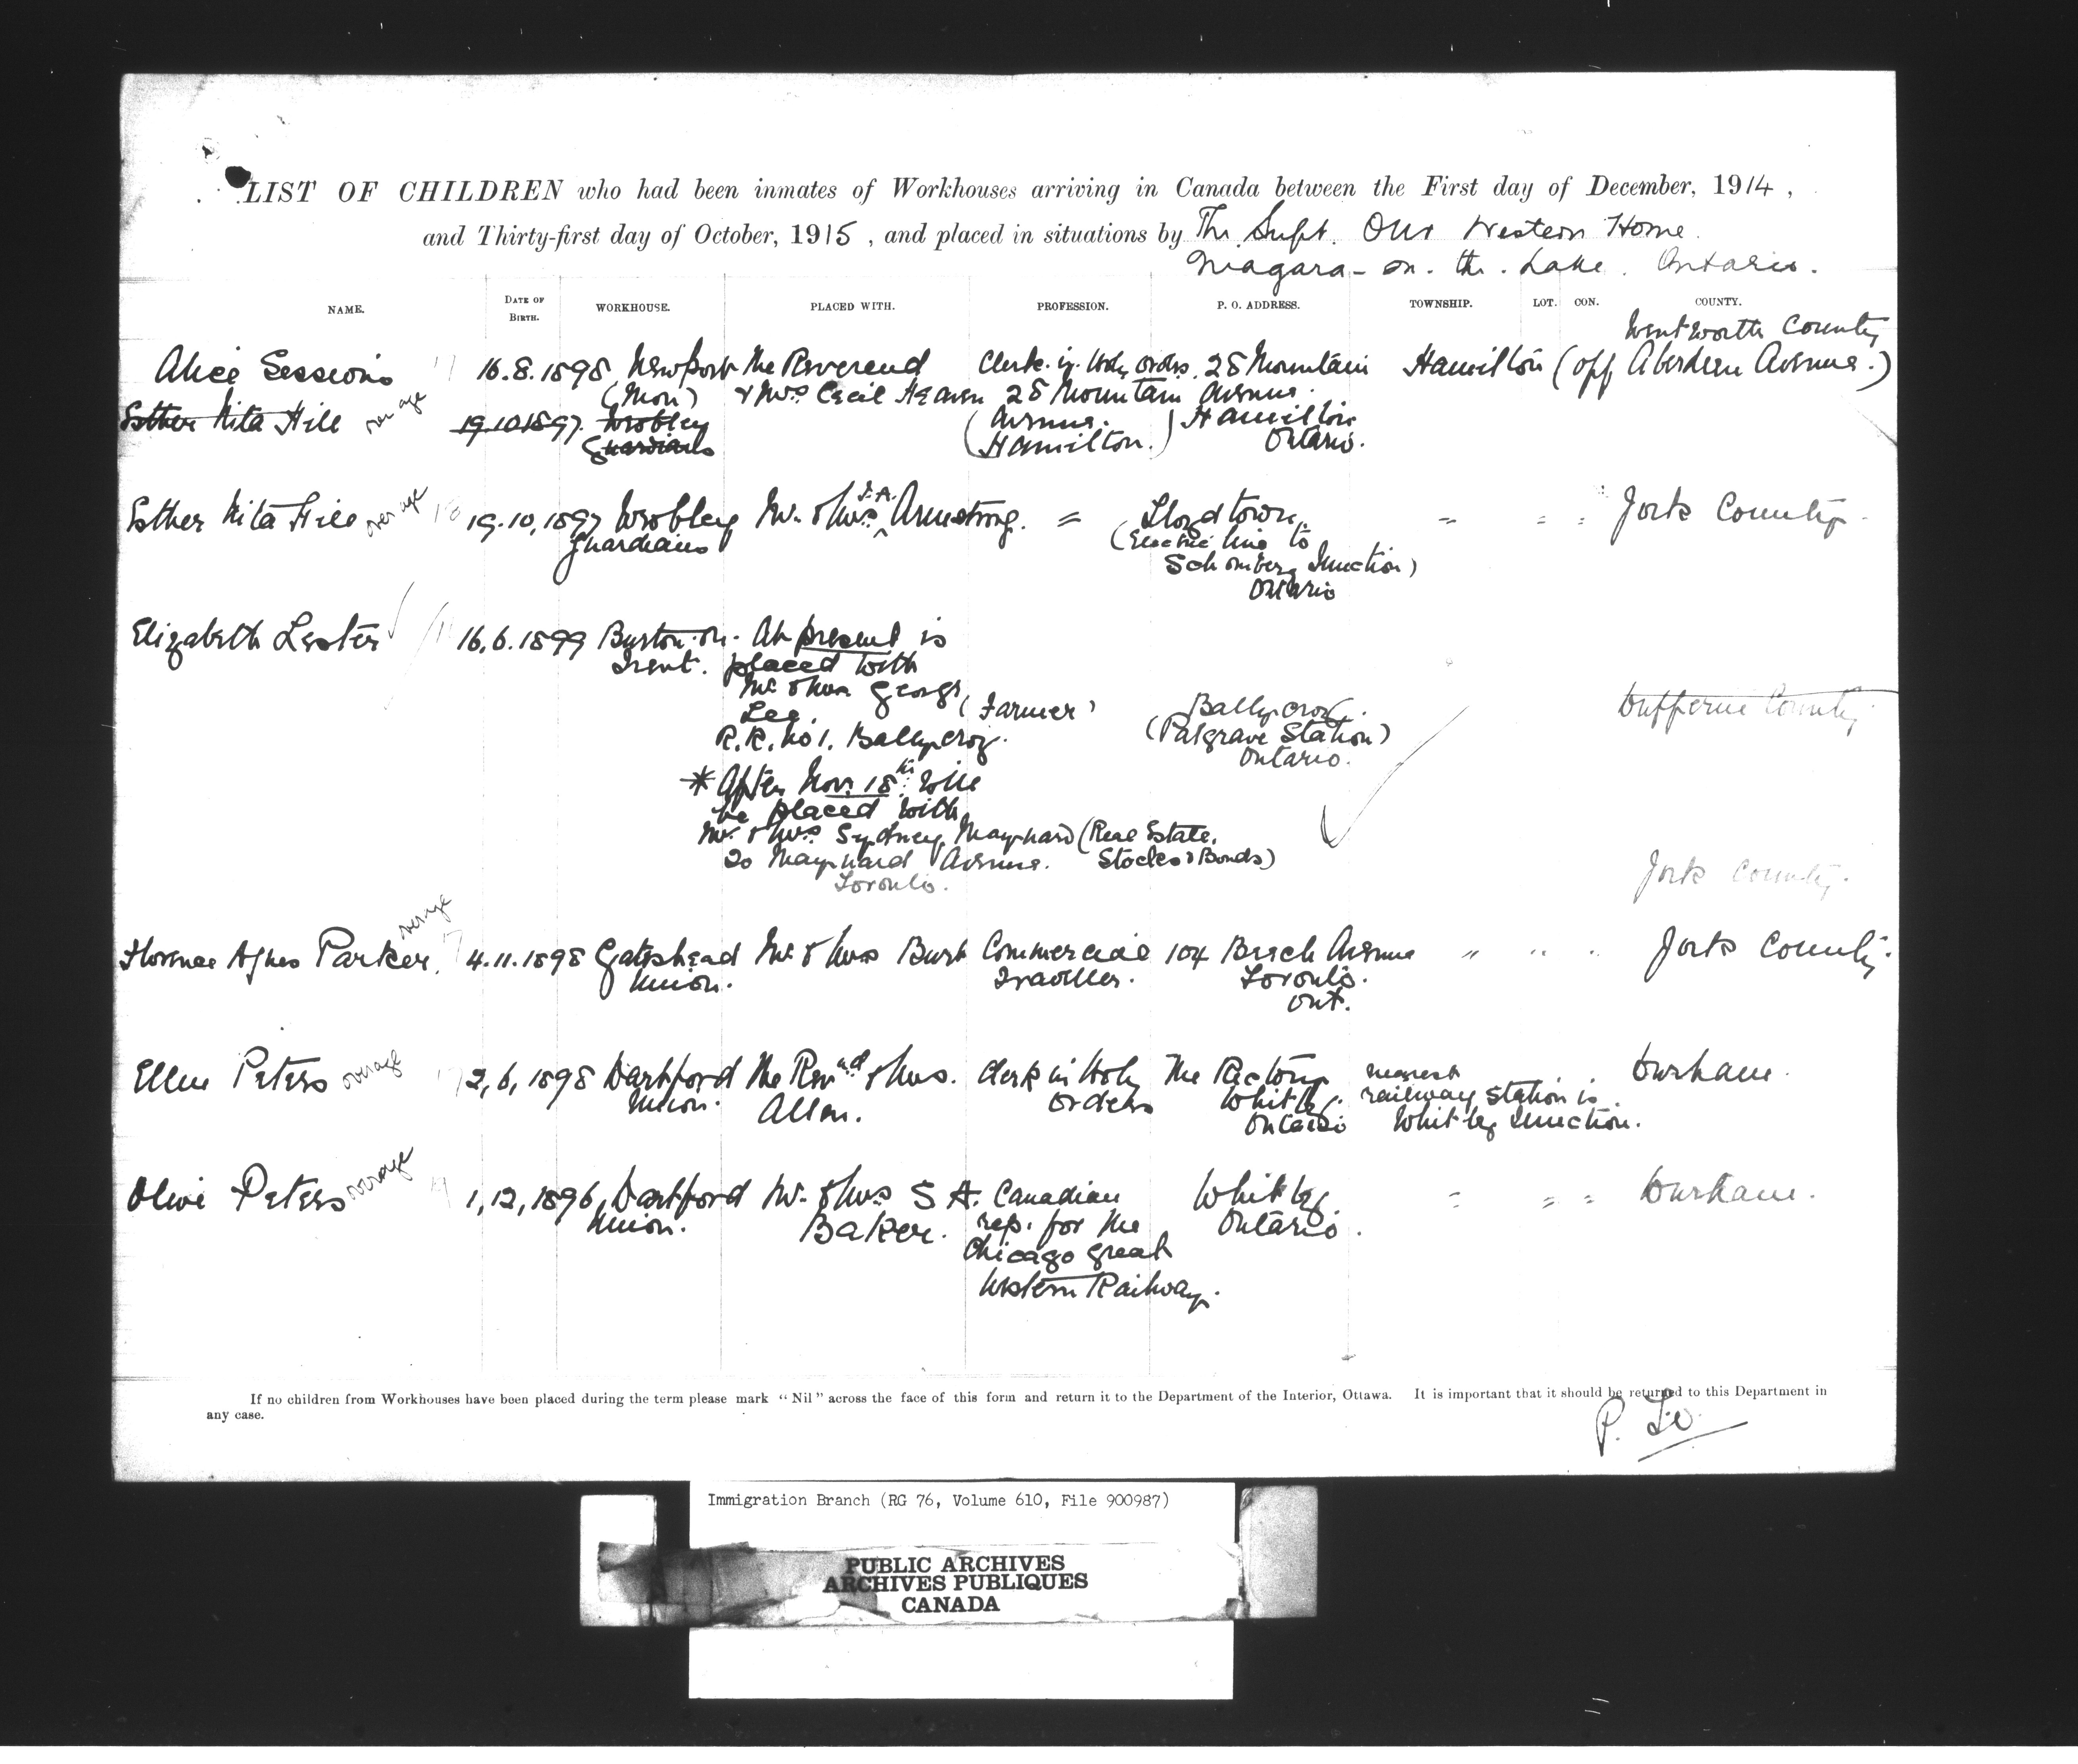 LIST OF CHILDREN who had been inmates of Workhouses arriving in Canada between the First day of December, 1914 ,
and Thirty-first day of October, 1915 , and placed in situations by The Supt. Our Western Home.
Niagara - on. the. Lake. Ontario.
NAME. DATE OF BIRTH. WORKHOUSE. PLACED WITH. PROFESSION. P. O. ADDRESS. TOWNSHIP. LOT. CON. COUNTY.
Wentworth County
Alice Sessions 17 16.8.1898 Newport The Reverend Clerk in Holy Orders. 25 Mountain Hamilton (off Aberdeen Avenue.)
(Mon) & Mrs Cecil Heaven 25 Mountain Avenue.
Esther Nita Hill over age 19.10.1897. Wrobley (Avenue. Hamilton
Guardians Hamilton.) Ontario.
Esther Nita Hill over age 18 19.10.1897 Wrobley Mr. & Mrs J.A. Armstrong. = Lloydtown = = = York County.
Guardians (Electric line to
Schomberg Junction)
Ontario
Elizabeth Lester 16.6.1899 Burton-on- At present is
Trent. placed with
Mr & Mrs George (Farmer) Ballycroy. Dufferin County
Lee. (Palgrave Station)
R.R. No 1. Ballycroy. Ontario.
* After Nov. 18th will
be placed with
Mr. & Mrs Sydney Maynard (Real Estate.
20 Maynard Avenue. Stocks & Bonds)
Toronto. York County.
Florence Agnes Parker. overage 17 4.11.1898 Gateshead Mr & Mrs Burt Commercial 104 Beech Avenue " " " York County.
Union. Traveller. Toronto.
Ont.
Ellen Peters overage 17 2,6,1898 Dartford The Revnd & Mrs. Clerk in Holy The Rectory nearest Durham.
Union. Allen. Orders Whitby. railway station is
Ontario Whitby Junction.
Olive Peters overage 1,12,1896, Dartford Mr. & Mrs S A. Canadian Whitby. = = = Durham.
Union. Baker. rep. for the Ontario.
Chicago Great
Western Railway.
If no children from Workhouses have been placed during the term please mark "Nil" across the face of this form and return it to the Department of the Interior, Ottawa. It is important that it should be returned to this Department in
any case.
Immigration Branch (RG 76, Volume 610, File 900987)
PUBLIC ARCHIVES
ARCHIVES PUBLIQUES
CANADA